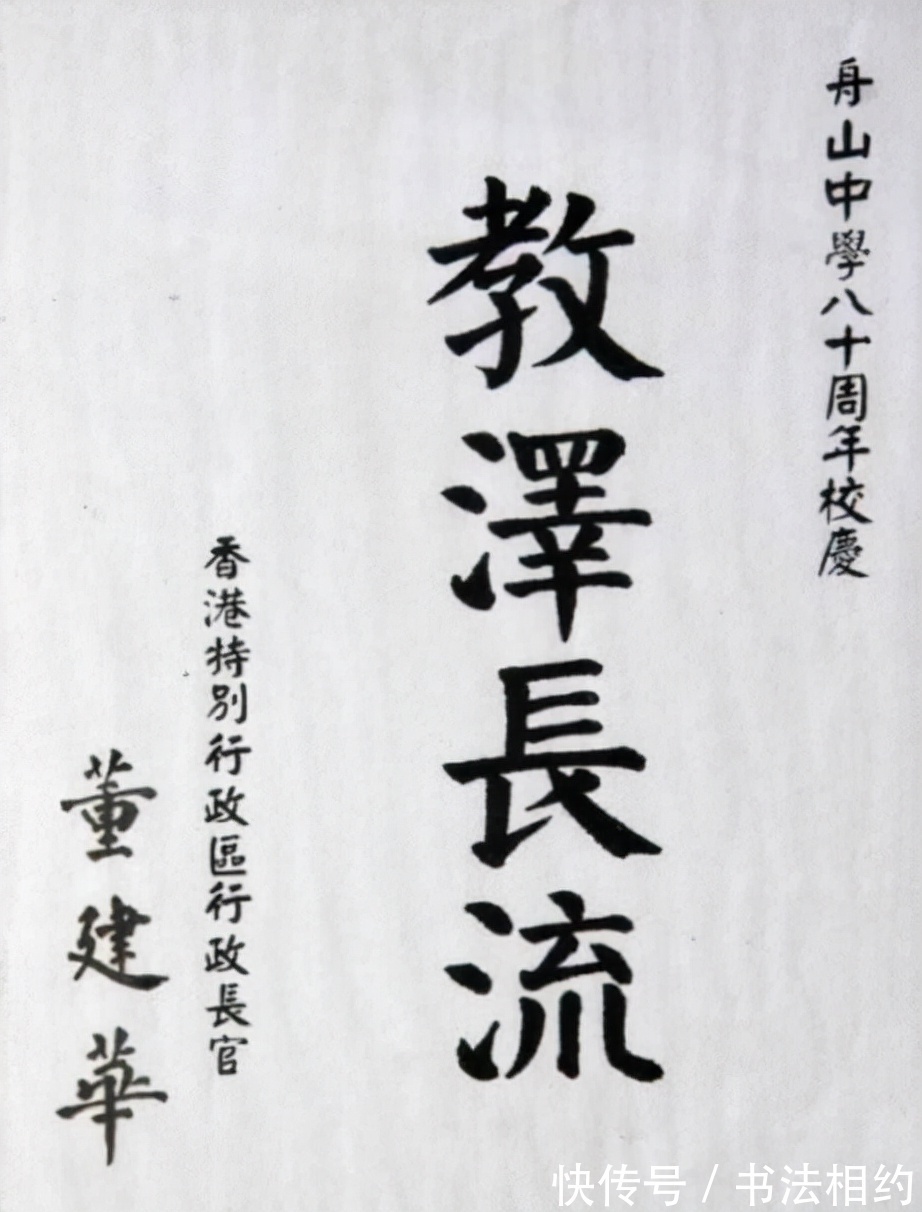 舟山中學八十周年校慶
教澤長流
香港特別行政區行政長官
董建華
快传号 / 书法相约